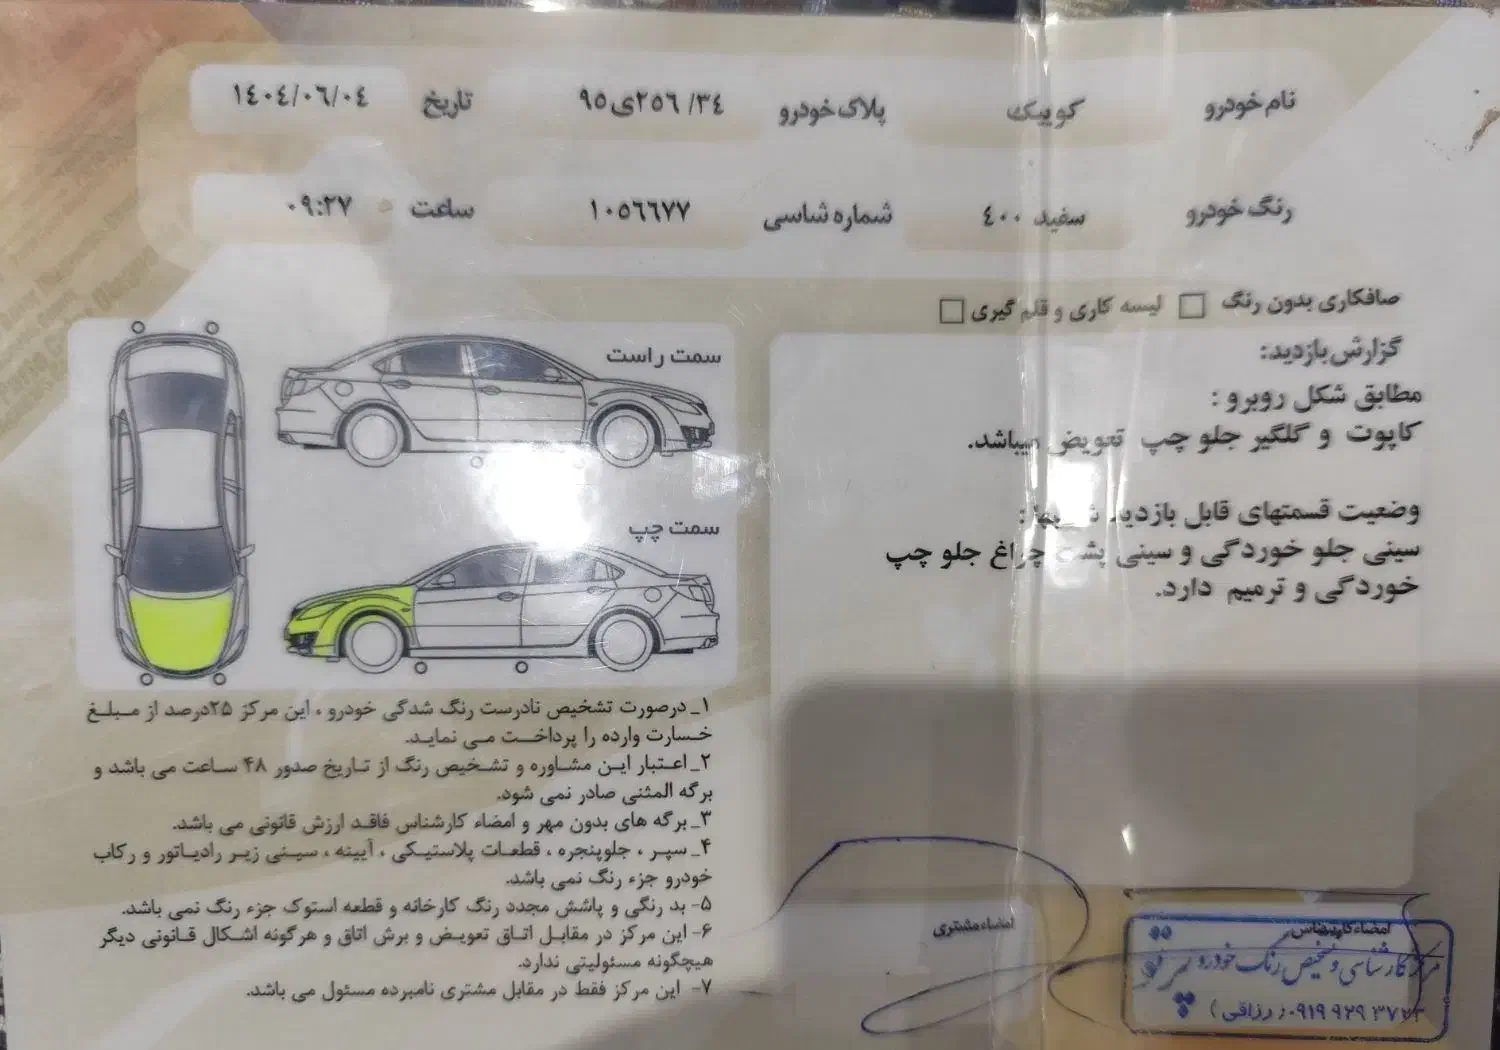 نام خودرو کوییک پلاک خودرو ۳۴/ ۲۵۶ی۹۵ تاریخ ۱۴۰۴/۰۶/۰۴
رنگ خودرو سفید ۴۰۰ شماره شاسی ۱۰۵۶۶۷۷ ساعت ۰۹:۲۷
صافکاری بدون رنگ لیسه کاری و قلم گیری
گزارش بازدید:
مطابق شکل روبرو :
کاپوت و گلگیر جلو چپ تعویض میباشد.
وضعیت قسمتهای قابل بازدید
سینی جلو خوردگی و سینی پشت چراغ جلو چپ
خوردگی و ترمیم دارد.
سمت راست
سمت چپ
۱_ درصورت تشخیص نادرست رنگ شدگی خودرو ، این مرکز ۲۵درصد از مبلغ
خسارت وارده را پرداخت می نماید.
۲_ اعتبار این مشاوره و تشخیص رنگ از تاریخ صدور ۴۸ ساعت می باشد و
برگه المثنی صادر نمی شود.
۳_ برگه های بدون مهر و امضاء کارشناس فاقد ارزش قانونی می باشد.
۴_ سپر ، جلوپنجره ، قطعات پلاستیکی ، آیینه ، سینی زیر رادیاتور و رکاب
خودرو جزء رنگ نمی باشد.
۵- بد رنگی و پاشش مجدد رنگ کارخانه و قطعه استوک جزء رنگ نمی باشد.
۶- این مرکز در مقابل اتاق تعویض و برش اتاق و هرگونه اشکال قانونی دیگر
هیچگونه مسئولیتی ندارد.
۷- این مرکز فقط در مقابل مشتری نامبرده مسئول می باشد.
امضاء مشتری
امضاء کارشناس
مرکز کارشناسی و تشخیص رنگ خودرو
(رزاقی)